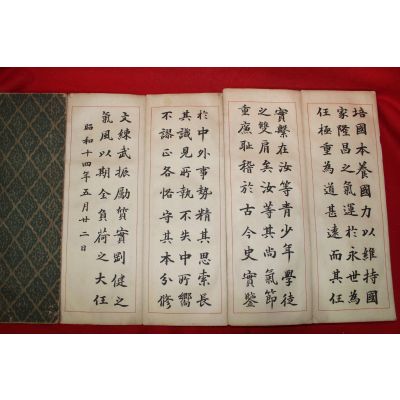 培國本養國力以維持國
家隆昌之氣運於永世為
任極重為道甚遠而其任
實繫在汝等青少年學徒
之雙肩矣汝等其尚氣節
重廉耻稽於古今史實鑒
於中外事勢精其思索長
其識見所執不失中所嚮
不謬正各恪守其本分修
文練武振勵質實剛健之
氣風以期全負荷之大任
昭和十四年五月廿二日